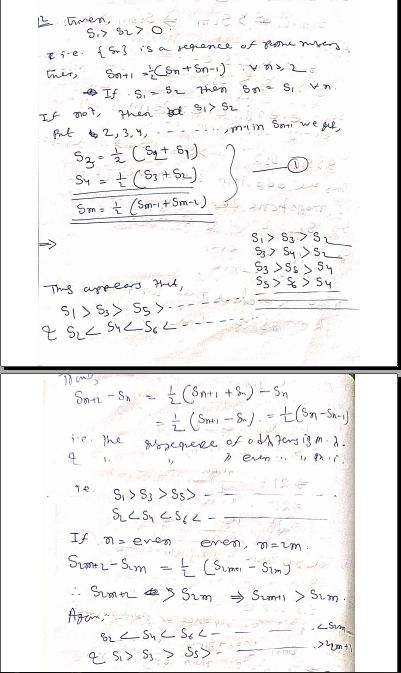 12 Given,
S₁ > S₂ > 0.
i.e. {Sₙ} is a sequence of
then, Sₙ₊₁ = ½(Sₙ + Sₙ₋₁) ∀ n ≥ 2
If S₁ = S₂ then Sₙ = S₁ ∀ n.
If not, then S₁ > S₂
Put 2, 3, 4, - - - - - , m-1 in Sₙ₊₁ we get,
S₃ = ½ (S₂ + S₁)
S₄ = ½ (S₃ + S₂)
Sₘ = ½ (Sₘ₋₁ + Sₘ₋₂)
①
⇒
S₁ > S₃ > S₂
S₃ > S₄ > S₂
S₃ > S₅ > S₄
S₅ > S₆ > S₄
This appears that,
S₁ > S₃ > S₅ > - - - -
& S₂ < S₄ < S₆ < - - - -
Sₙ₊₂ - Sₙ = ½ (Sₙ₊₁ + Sₙ) - Sₙ
= ½ (Sₙ₊₁ - Sₙ) = ½ (Sₙ - Sₙ₋₁)
i.e. the of odd terms is m.d.
& " " " even " " m.i.
i.e. S₁ > S₃ > S₅ > - - -
S₂ < S₄ < S₆ < - - -
If n = even even, n = 2m.
S₂ₘ₊₂ - S₂ₘ = ½ (S₂ₘ₊₁ - S₂ₘ)
∴ S₂ₘ₊₂ > S₂ₘ ⇒ S₂ₘ₊₁ > S₂ₘ.
Again,
S₂ < S₄ < S₆ < - - - - < S₂ₘ
& S₁ > S₃ > S₅ > - - - -